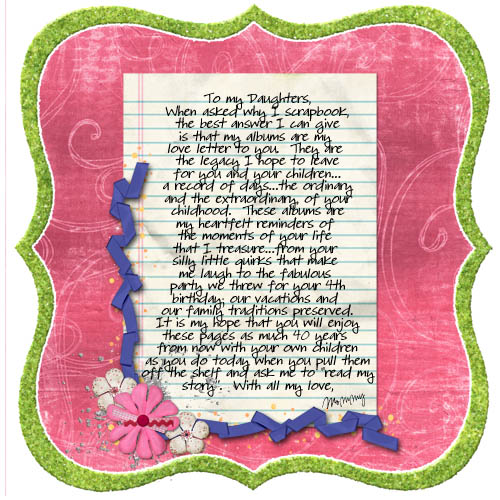 To my Daughters,
When asked why I scrapbook,
the best answer I can give
is that my albums are my
love letter to you. They are
the legacy I hope to leave
for you and your children...
a record of days...the ordinary
and the extraordinary, of your
childhood. These albums are
my heartfelt reminders of
the moments of your life
that I treasure...from your
silly little quirks that make
me laugh to the fabulous
party we threw for your 4th
birthday; our vacations and
our family traditions preserved.
It is my hope that you will enjoy
these pages as much 40 years
from now with your own children
as you do today when you pull them
off the shelf and ask me to "read my
story". With all my love,
Mommy